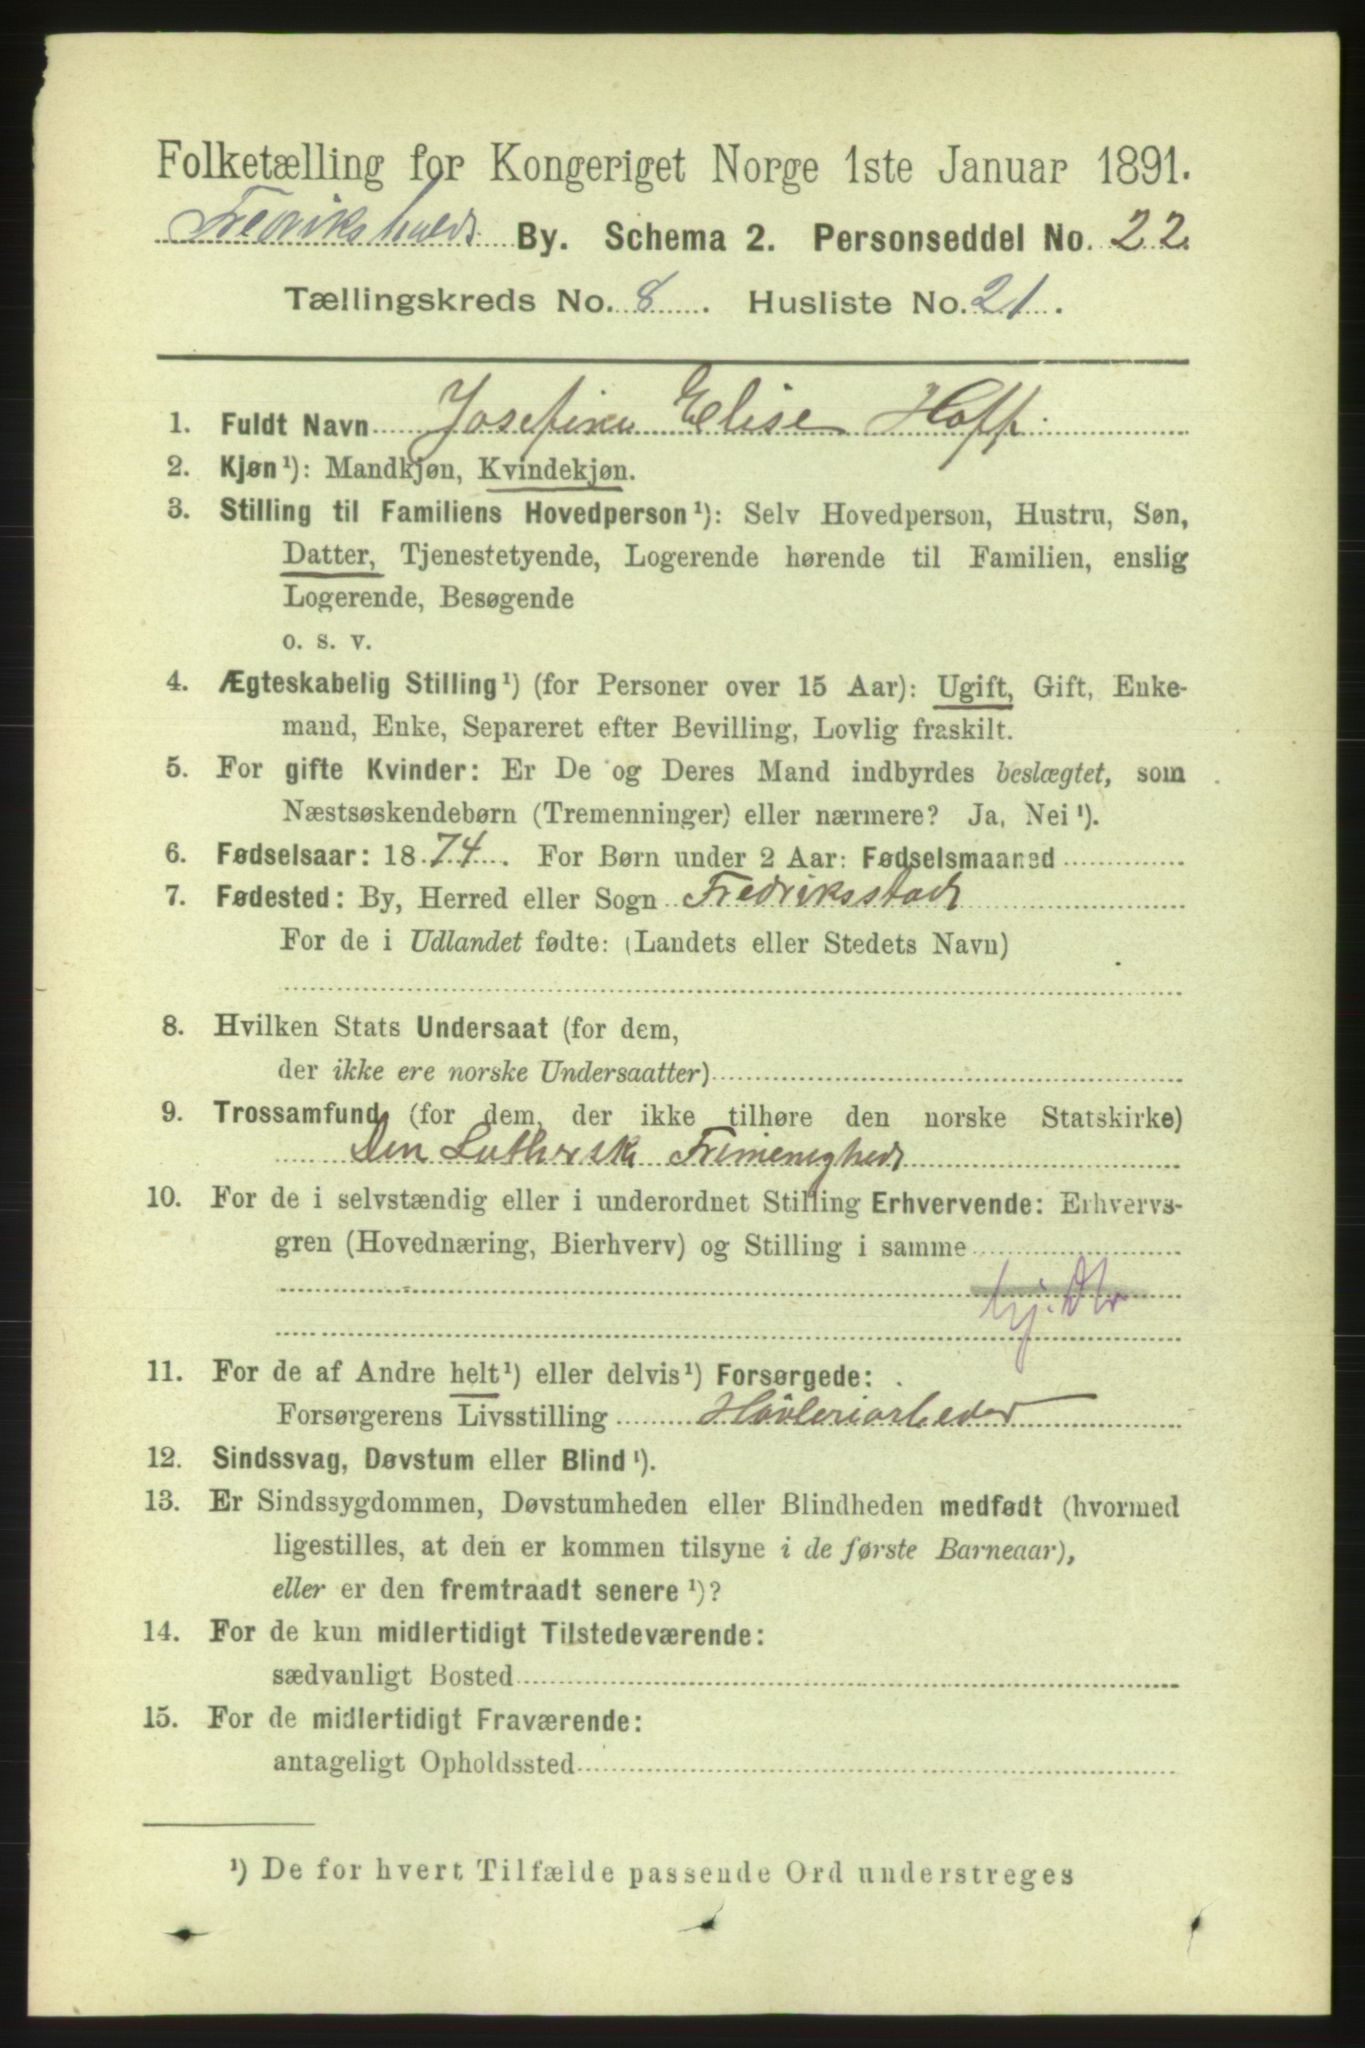 Folketælling for Kongeriget Norge 1ste Januar 1891.
Fredrikshald By. Schema 2. Personseddel No. 22
Tællingskreds No. 8. Husliste No. 21.
1. Fuldt Navn Josefine Elise Hoff
2. Kjøn¹): Mandkjøn, Kvindekjøn.
3. Stilling til Familiens Hovedperson¹): Selv Hovedperson, Hustru, Søn,
Datter, Tjenestetyende, Logerende hørende til Familien, enslig
Logerende, Besøgende
o. s. v.
4. Ægteskabelig Stilling¹) (for Personer over 15 Aar): Ugift, Gift, Enke-
mand, Enke, Separeret efter Bevilling, Lovlig fraskilt.
5. For gifte Kvinder: Er De og Deres Mand indbyrdes beslægtet, som
Næstsøskendebørn (Tremenninger) eller nærmere? Ja, Nei¹).
6. Fødselsaar: 1874. For Børn under 2 Aar: Fødselsmaaned
7. Fødested: By, Herred eller Sogn Fredriksstad
For de i Udlandet fødte: (Landets eller Stedets Navn)
8. Hvilken Stats Undersaat (for dem,
der ikke ere norske Undersaatter)
9. Trossamfund (for dem, der ikke tilhøre den norske Statskirke)
Den Luthersk Frimenighed
10. For de i selvstændig eller i underordnet Stilling Erhvervende: Erhvervs-
gren (Hovednæring, Bierhverv) og Stilling i samme
11. For de af Andre helt¹) eller delvis¹) Forsørgede:
Forsørgerens Livsstilling Høvleriarbeder
12. Sindssvag, Døvstum eller Blind¹).
13. Er Sindssygdommen, Døvstumheden eller Blindheden medfødt (hvormed
ligestilles, at den er kommen tilsyne i de første Barneaar),
eller er den fremtraadt senere¹)?
14. For de kun midlertidigt Tilstedeværende:
sædvanligt Bosted
15. For de midlertidigt Fraværende:
antageligt Opholdssted
¹) De for hvert Tilfælde passende Ord understreges